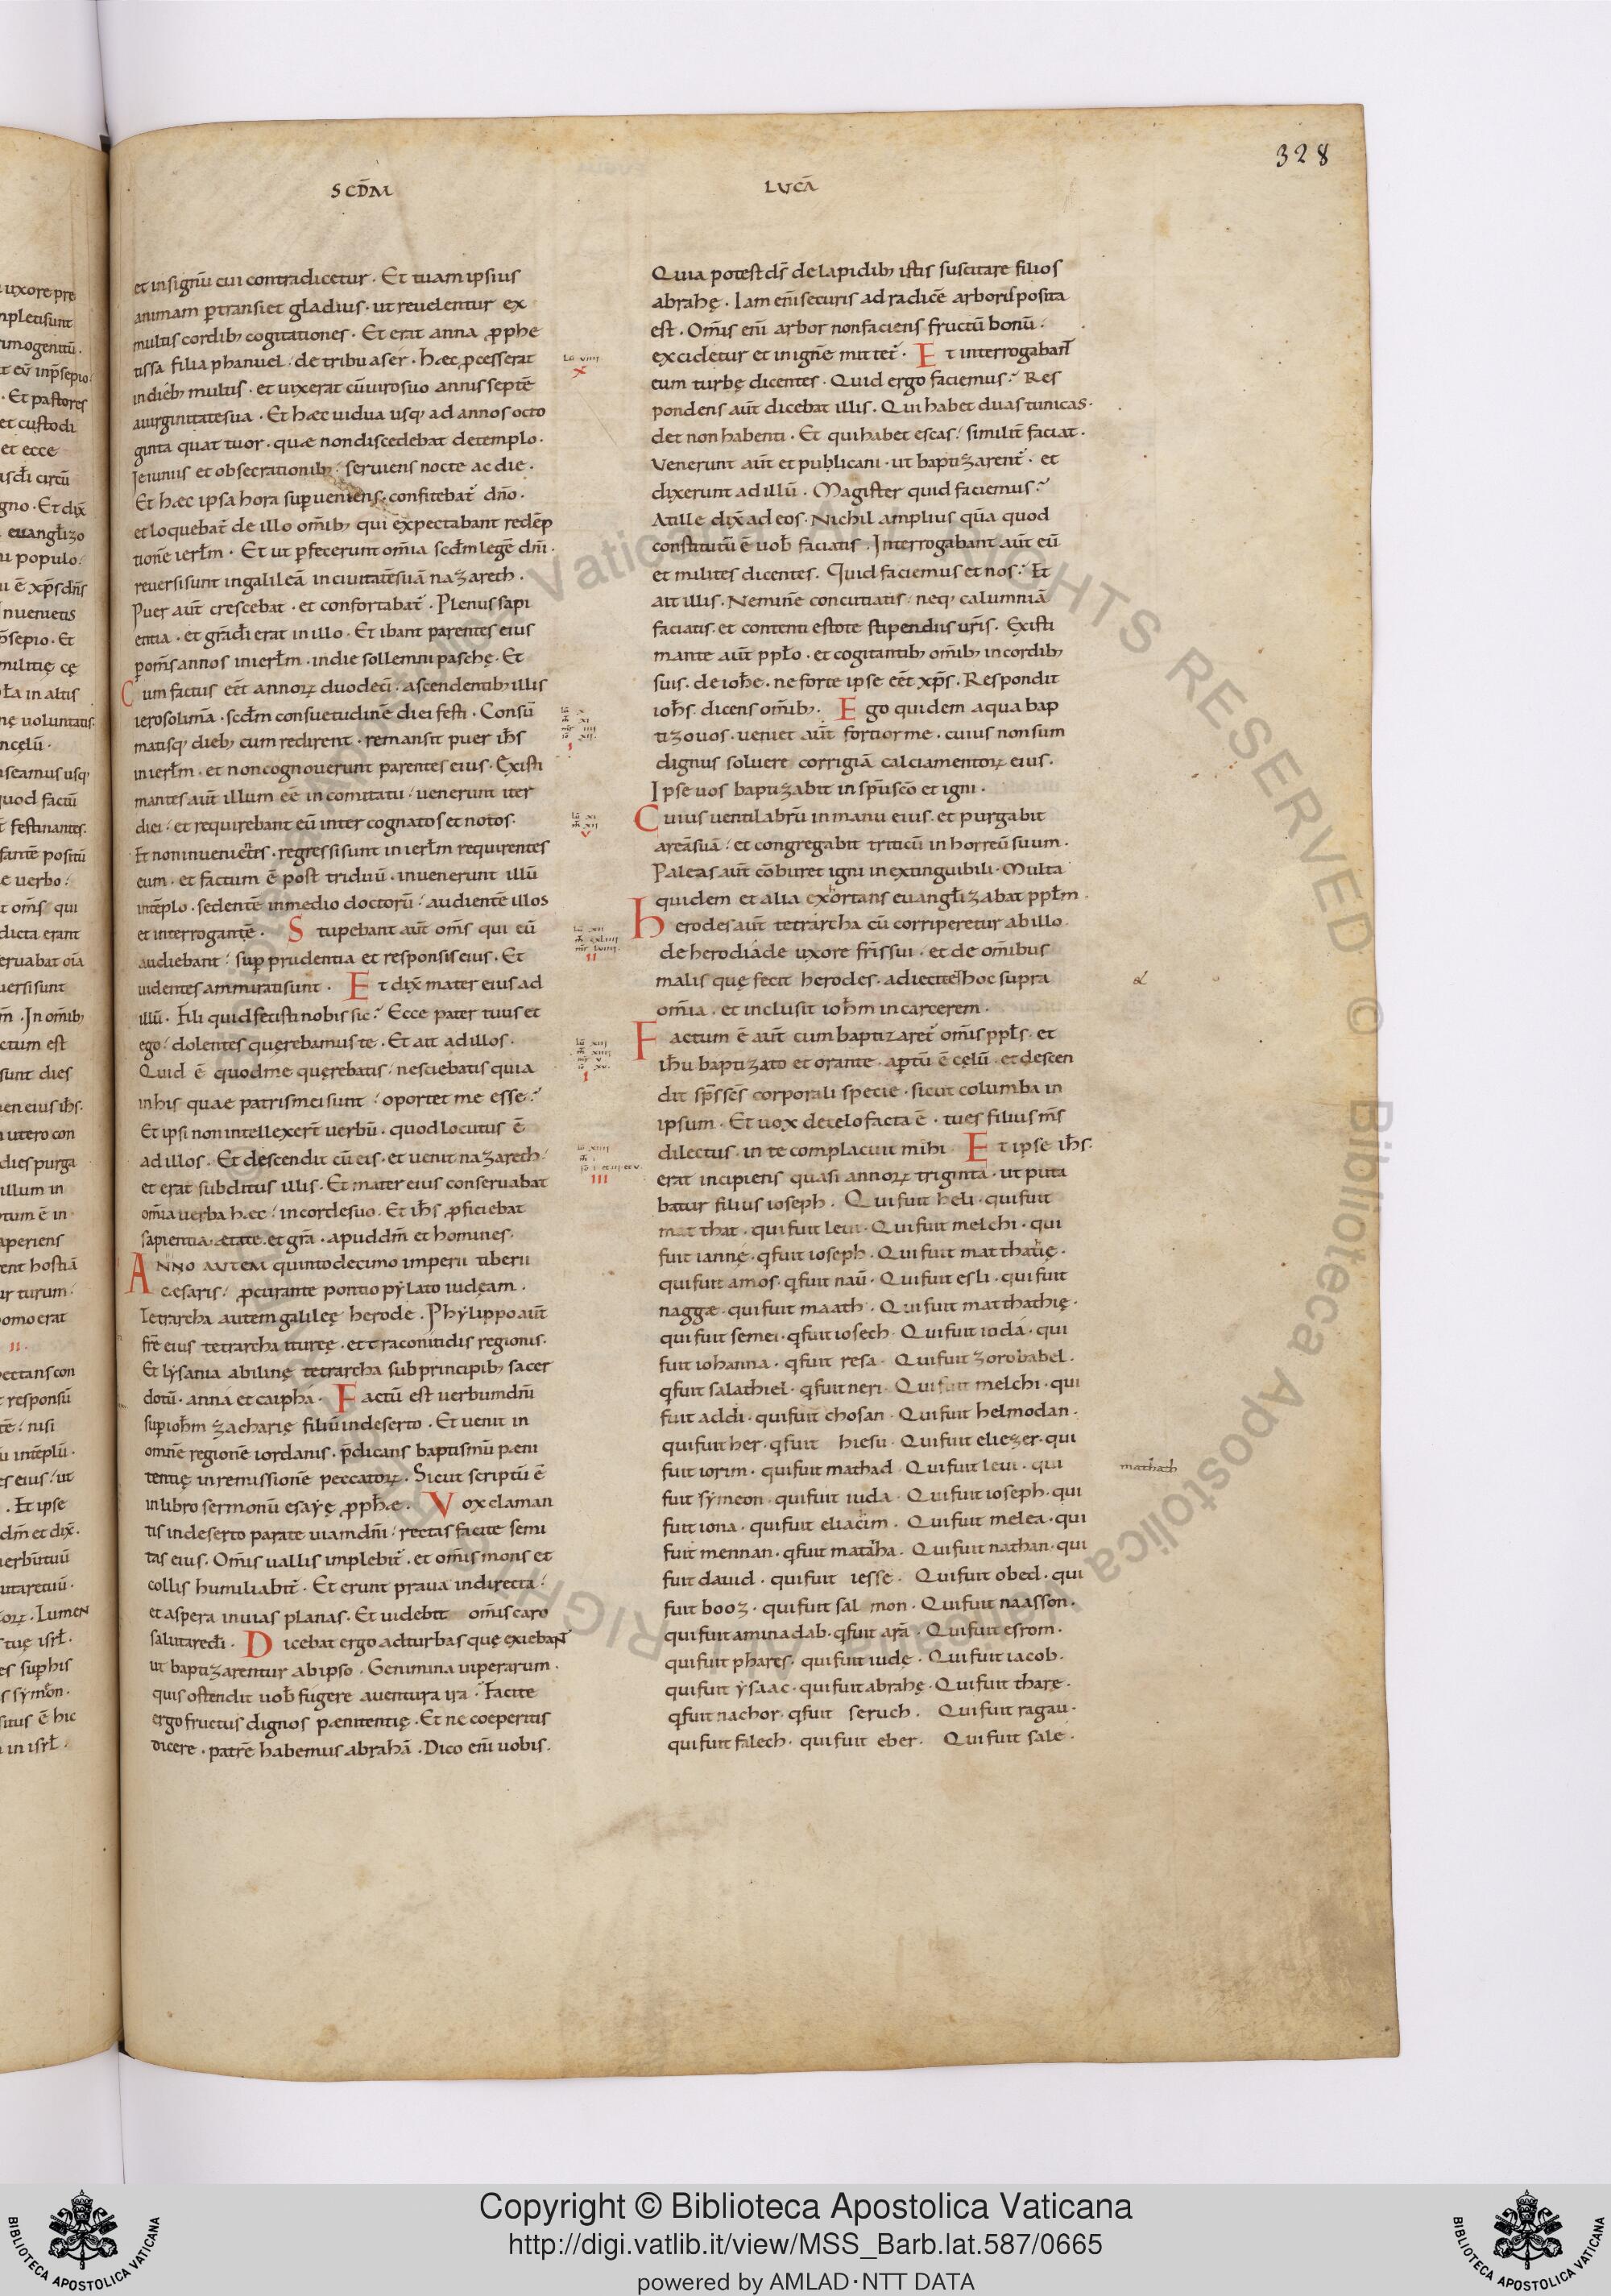 328
SCD̄M
LUCĀ
et insignū cui contradicetur · Et tuam ipsius
animam ꝑtransiet gladius · ut reuelentur ex
multis cordib; cogitationes · Et erat anna ꝓphe
tissa filia phanuel · de tribu aser · hæc ꝓcesserat
in dieb; multis · et uixerat cū uiro suo annis septē
a uirginitate sua · Et hæc uidua usq; ad annos octo
ginta quattuor · quæ non discedebat de templo ·
Ieiuniis et obsecrationib; seruiens nocte ac die ·
Et hæc ipsa hora suꝑueniens · confitebat̄ dn̄o ·
et loquebat̄ de illo om̄ib; qui expectabant redēp
tionē ierłm · Et ut ꝑfecerunt om̄ia scd̄m legē dn̄i ·
reuersi sunt in galileā in ciuitatē suā nazareth ·
Puer aūt crescebat · et confortabat̄ · Plenus sapi
entia · et gr̄a dī erat in illo · Et ibant parentes eius
ꝑ om̄s annos in ierłm · in die sollemni paschę · Et
Cum factus eēt annoꝝ duodecī · ascendentib; illis
ierosolimā · scd̄m consuetudinē diei festi · Consū
matisq; dieb; cum redirent · remansit puer ih̄s
in ierłm · et non cognouerunt parentes eius · Existi
mantes aūt illum eē in comitatu · uenerunt iter
diei · et requirebant eū inter cognatos et notos ·
Et non inuenientes · regressi sunt in ierłm requirentes
eum · et factum ē post triduū · inuenerunt illū
in tēplo · sedentē in medio doctorū · audientē illos
et interrogantē · Stupebant aūt om̄s qui eū
audiebant · suꝑ prudentia et responsis eius · Et
uidentes ammirati sunt · Et dix̄ mater eius ad
illū · Fili quid fecisti nobis sic? Ecce pater tuus et
ego · dolentes quęrebamus te · Et ait ad illos ·
Quid ē quod me quęrebatis · nesciebatis quia
in his quae patris mei sunt · oportet me esse?
Et ipsi non intellexer̄t uerbū · quod locutus ē
ad illos · Et descendit cū eis · et uenit nazareth ·
et erat subditus illis · Et mater eius conseruabat
om̄ia uerba hæc · in corde suo · Et ih̄s ꝓficiebat
sapientia · ætate · et gr̄a · apud dm̄ et homines ·
ANNO AUTEM quintodecimo imperii tiberii
cæsaris · ꝓcurante pontio pẏlato iudęam ·
Tetrarcha autem galileę herode · Phẏlippo aūt
fr̄e eius tetrarcha itureę · et traconitidis regionis ·
Et lẏsania abilinę tetrarcha sub principib; sacer
dotū · anna et caipha · Factū est uerbum dn̄i
suꝑ ioh̄m zacharię filiū in deserto · Et uenit in
omnē regionē iordanis · p̄dicans baptismū pæni
tentię in remissionē peccatoꝝ · Sicut scriptū ē
in libro sermonū esaẏę ꝓph̄æ · Vox claman
tis in deserto parate uiam dn̄i · rectas facite semi
tas eius · Om̄is uallis implebit̄ · et om̄is mons et
collis humiliabit̄ · Et erunt praua in directa ·
et aspera in uias planas · Et uidebit om̄is caro
salutare dī · Dicebat ergo ad turbas quę exiebant
ut baptizarentur ab ipso · Genimina uiperarum ·
quis ostendit uob̄ fugere a uentura ira? Facite
ergo fructus dignos pænitentię · Et ne coeperitis
dicere · patrē habemus abrahā · Dico enī uobis ·
Quia potest ds̄ de lapidib; istis suscitare filios
abrahę · Iam enī securis ad radicē arboris posita
est · Om̄is enī arbor non faciens fructū bonū ·
excidetur et in ignē mittet̄ · Et interrogabant
eum turbę dicentes · Quid ergo faciemus? Res
pondens aūt dicebat illis · Qui habet duas tunicas ·
det non habenti · Et qui habet escas · similit̄ faciat ·
Venerunt aūt et publicani · ut baptizarent̄ · et
dixerunt ad illū · Magister quid faciemus?
At ille dix̄ ad eos · Nichil amplius quā quod
constitutū ē uob̄ faciatis · Interrogabant aūt eū
et milites dicentes · Quid faciemus et nos? Et
ait illis · Neminē concutiatis · neq; calumniā
faciatis · et contenti estote stipendiis ur̄is · Existi
mante aūt ppło · et cogitantib; om̄ib; in cordib;
suis · de ioh̄e · ne forte ipse eēt xp̄s · Respondit
ioh̄s dicens om̄ib; · Ego quidem aqua bap
tizo uos · ueniet aūt fortior me · cuius non sum
dignus soluere corrigiā calciamentoꝝ eius ·
Ipse uos baptizabit in sp̄u sc̄o et igni ·
Cuius uentilabrū in manu eius · et purgabit
areā suā · et congregabit triticū in horreū suum ·
Paleas aūt cōburet igni inextinguibili · Multa
quidem et alia exhortans euangłizabat ppłm ·
Herodes aūt tetrarcha cū corriperetur ab illo
de herodiade uxore fr̄is sui · et de om̄ibus
malis quę fecit herodes · adiecit et hoc supra
om̄ia · et inclusit ioh̄m in carcerem ·
Factum ē aūt cum baptizaret̄ om̄is ppłs · et
ih̄u baptizato et orante · aꝑtū ē cęlū · et descen
dit sp̄s sc̄s corporali specie · sicut columba in
ipsum · Et uox de celo facta ē · tu es filius m̄s
dilectus · in te complacuit mihi · Et ipse ih̄s
erat incipiens quasi annoꝝ triginta · ut puta
batur filius ioseph · Qui fuit heli · qui fuit
matthat · qui fuit leui · Qui fuit melchi · qui
fuit iannę · q̄ fuit ioseph · Qui fuit matthatię ·
qui fuit amos · q̄ fuit naū · Qui fuit esli · qui fuit
naggæ · qui fuit maath · Qui fuit matthathię ·
qui fuit semei · q̄ fuit iosech · Qui fuit ioda · qui
fuit iohanna · q̄ fuit resa · Qui fuit zorobabel ·
q̄ fuit salathiel · q̄ fuit neri · Qui fuit melchi · qui
fuit addi · qui fuit chosan · Qui fuit helmodan ·
qui fuit her · q̄ fuit hiesu · Qui fuit eliezer · qui
fuit iorim · qui fuit mathad · Qui fuit leui · qui
mathath
fuit sẏmeon · qui fuit iuda · Qui fuit ioseph · qui
fuit iona · qui fuit eliachim · Qui fuit melea · qui
fuit mennan · q̄ fuit matatha · Qui fuit nathan · qui
fuit dauid · qui fuit iesse · Qui fuit obed · qui
fuit booz · qui fuit salmon · Qui fuit naasson ·
qui fuit aminadab · q̄ fuit arā · Qui fuit esrom ·
qui fuit phares · qui fuit iudę · Qui fuit iacob ·
qui fuit ẏsaac · qui fuit abrahę · Qui fuit tharę ·
q̄ fuit nachor · q̄ fuit seruch · Qui fuit ragau ·
qui fuit falech · qui fuit eber · Qui fuit sale ·
Copyright © Biblioteca Apostolica Vaticana
http://digi.vatlib.it/view/MSS_Barb.lat.587/0665
powered by AMLAD·NTT DATA
BIBLIOTECA APOSTOLICA VATICANA
BIBLIOTECA APOSTOLICA VATICANA